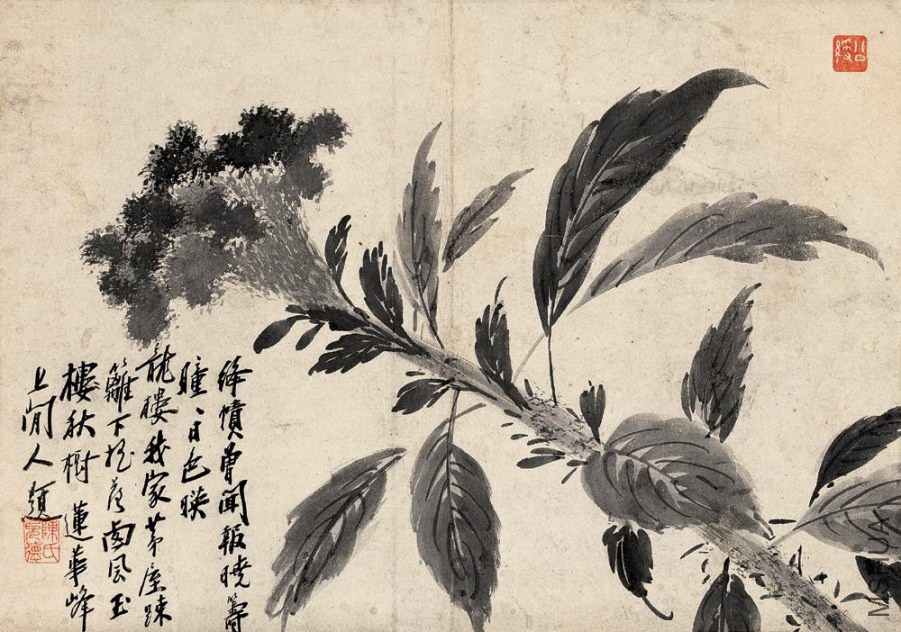 絳幘曾聞報曉籌
瞳〻日色映
龍樓我家茅屋踈
籬下搖落西風玉
樓秋樹 蓮華峰
上閒人題
陳氏
MSHUA